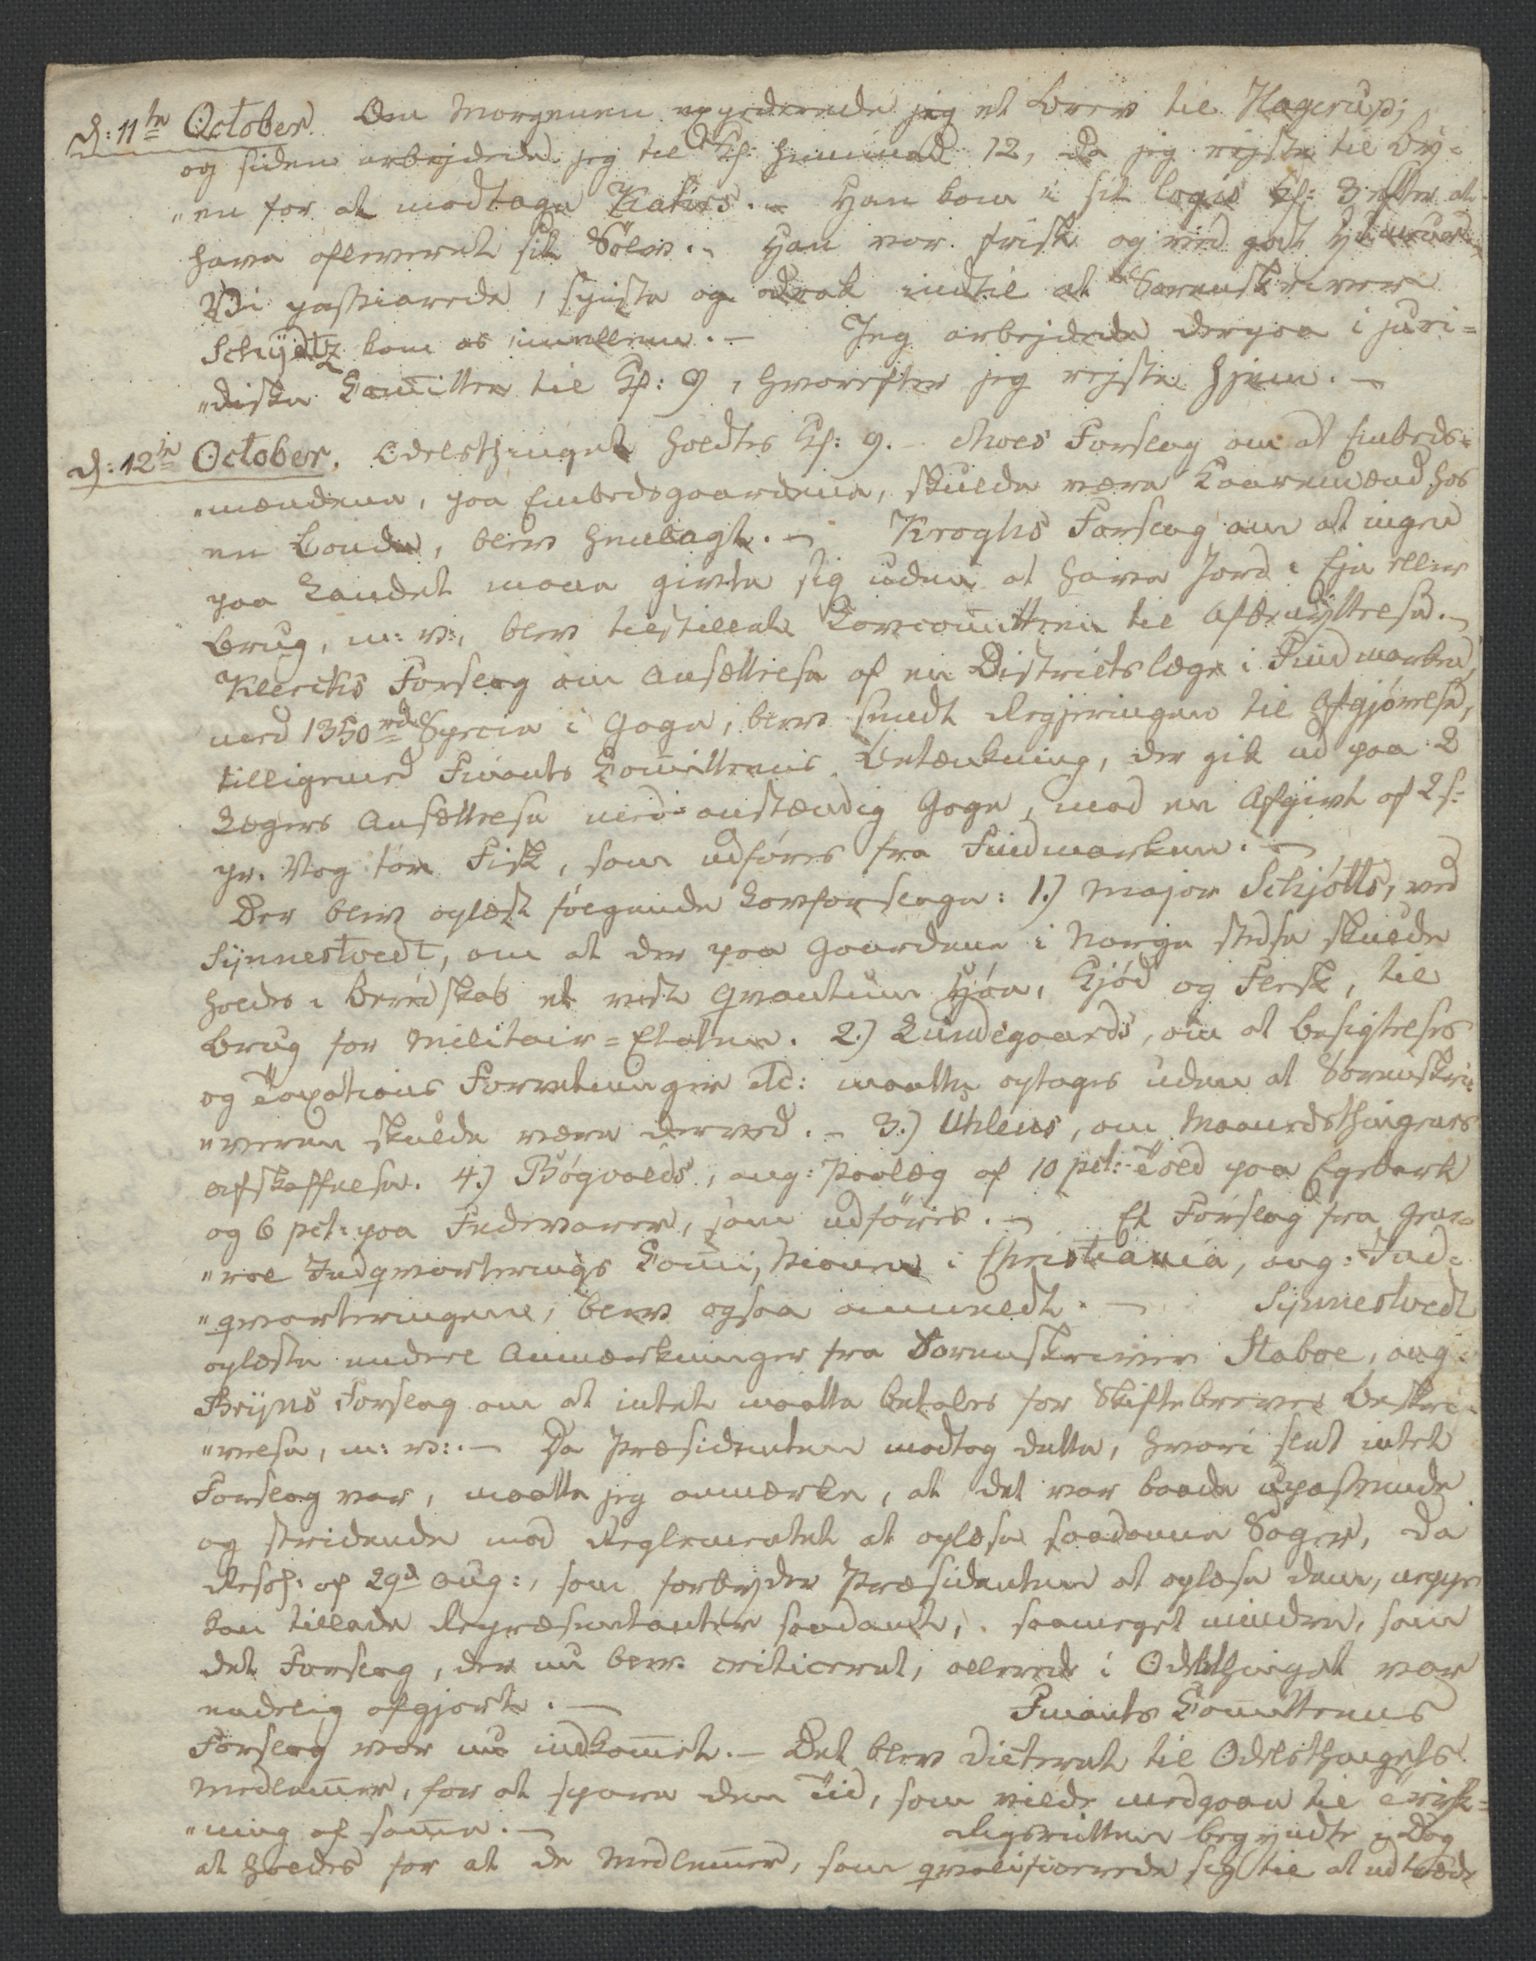 d: 11te October. Om Morgenen expederede jeg et Brev til Hagerup;
og siden arbejdede jeg til Kl: henimod 12, da jeg rejste til By-
"en for at modtage Kahrs. - Han kom i sit Logis Kl: 3 efter at
have afleveret sit Sølv. - Han var frisk og ved godt Humeur.
Vi passiarede, spiste og drak indtil at Sorenskriver
Schydtz kom os imellem. - Jeg arbejdede derpaa i juri-
"diske Comitten til Kl: 9, hvorefter jeg rejste hjem. -
d: 12te October. Odelsthinget holdtes Kl: 9. Moes Forslag om at Embeds-
"mændene, paa Embedsgaardene, skulde være Kaaremænd hos
en Bonde, blev henlagt. - Kroghs Forslag om at ingen
paa Landet maae givte sig uden at have Jord i Eje eller
Brug, m: v:, blev tilstillet Lovcomitteen til Afbenyttelse. -
Klerchs Forslag om Ansættelse af en Districtslæge i Findmarken,
med 1350 rd Specie i Gage, blev sendt Regjeringen til Afgjørelse,
tilligemed Finants Comitteens Betænkning, der gik ud paa 2
Lægers Ansættelse med anstændig Gage, mod en Afgivt af 2 s:
pr. Vog tør Fisk, som udføres fra Findmarken. -
Der blev oplæst følgende Lovforslage: 1.) Major Schjøtts, ved
Synnestvedt, om at der paa Gaardene i Norge stedse skulde
holdes i Beredskab et vist Qvantum Høe, Kjød og Flesk, til
Brug for Militair-Etaten. 2.) Lundegaards, om at Besigtelses
og Taxations Forretninger etc: maatte optages uden at Sorenskri-
"veren skulde være derved. - 3.) Uhlens, om Maanedsthingenes
Afskaffelse. 4.) Bøgvalds, ang: Paalæg af 10 pct: Told paa Egebark
og 6 pct: paa Fedevarer, som udføres. - Et Forslag fra Gene-
"ral Indqvarterings Commissionen i Christiania, ang: Ind-
"qvarteringen, blev ogsaa anmeldt. - Synnestvedt
oplæste endeel Anmærkninger fra Sorenskriver Staboe, ang:
Bryns Forslag om at intet maatte betales for Skiftebreves Beskri-
"velse, m: v:. - Da Præsidenten modtog dette, hvori slet intet
Forslag var, maatte jeg anmærke, at det var baade upassende
og stridende mod Reglementet at oplæse saadanne Sager, da
Resol: af 29d Aug:, som forbyder Præsidenten at oplæse dem, neppe
kan tillade Repræsentanter saadant, saameget mindre, som
det Forslag, der nu blev criticeret, allerede i Odelsthinget var
endelig afgjort. - Finants Comitteens
Forslag var nu indkommet. - Det blev dicteret til Odelsthingets
Medlemmer, for at spare den Tid, som vilde medgaae til Tryk-
"ning af samme. - Rigsretten begyndte i Dag
at holdes for at de Medlemmer, som qvalificerede sig til at udtræde